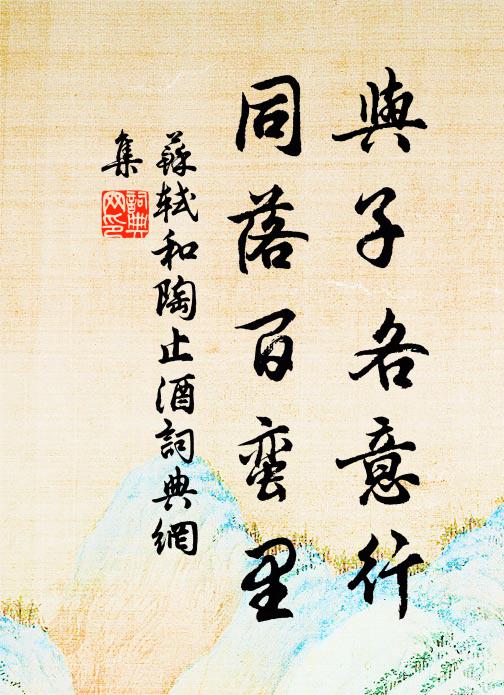 與子各意行
同落百蛮里
蘇軾和陶止酒詞典網
集
詞典
网印